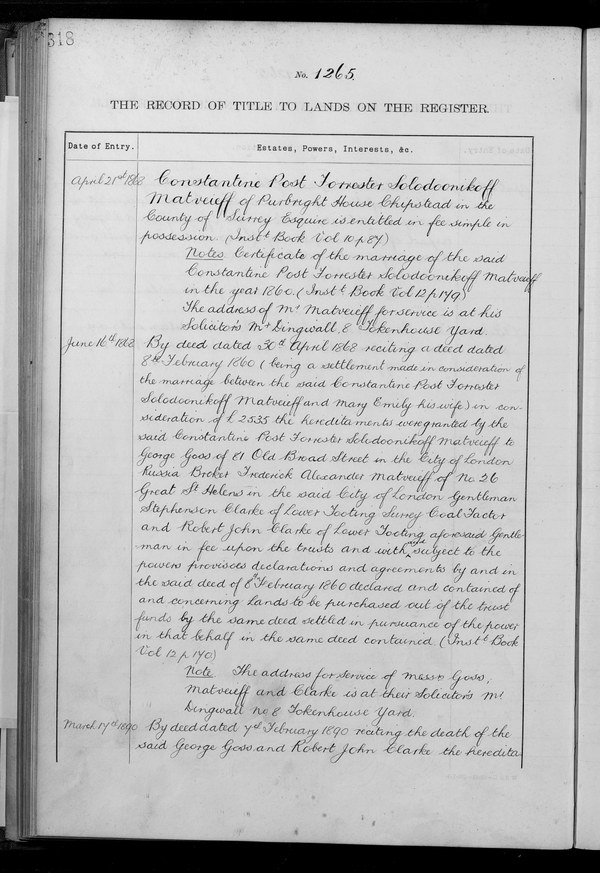 318
No. 1265.
THE RECORD OF TITLE TO LANDS ON THE REGISTER.
Date of Entry.
Estates, Powers, Interests, &c.
April 21st 1868 Constantine Post Forrester Solodoonikoff
Matveieff of Purbright House Chipstead in the
County of Surrey Esquire is entitled in fee simple in
possession. (Instt Book Vol 10 p 84)
Notes Certificate of the marriage of the said
Constantine Post Forrester Solodoonikoff Matveieff
in the year 1860. (Instt Book Vol 12 p 149)
The address of Mr Matveieff for service is at his
Solicitor's Mr Dingwall, 8 Tokenhouse Yard.
June 16th 1868 By deed dated 30th April 1868 reciting a deed dated
8th February 1860 (being a settlement made in consideration of
the marriage between the said Constantine Post Forrester
Solodoonikoff Matveieff and Mary Emily his wife) in con-
sideration of £2535 the hereditaments were granted by the
said Constantine Post Forrester Solodoonikoff Matveieff to
George Goss of 81 Old Broad Street in the City of London
Russia Broker Frederick Alexander Matveieff of No 26
Great St Helens in the said City of London Gentleman
Stephenson Clarke of Lower Tooting Surrey Coal Factor
and Robert John Clarke of Lower Tooting aforesaid Gentle-
man in fee upon the trusts and with and subject to the
powers provisoes declarations and agreements by and in
the said deed of 8th February 1860 declared and contained of
and concerning Lands to be purchased out of the trust
funds by the same deed settled in pursuance of the power
in that behalf in the same deed contained (Instt Book
Vol 12 p 140)
Note The address for service of Messrs Goss,
Matveieff and Clarke is at their Solicitors Mr
Dingwall No 8 Tokenhouse Yard.
March 17th 1890 By deed dated 7th February 1890 reciting the death of the
said George Goss and Robert John Clarke the heredita